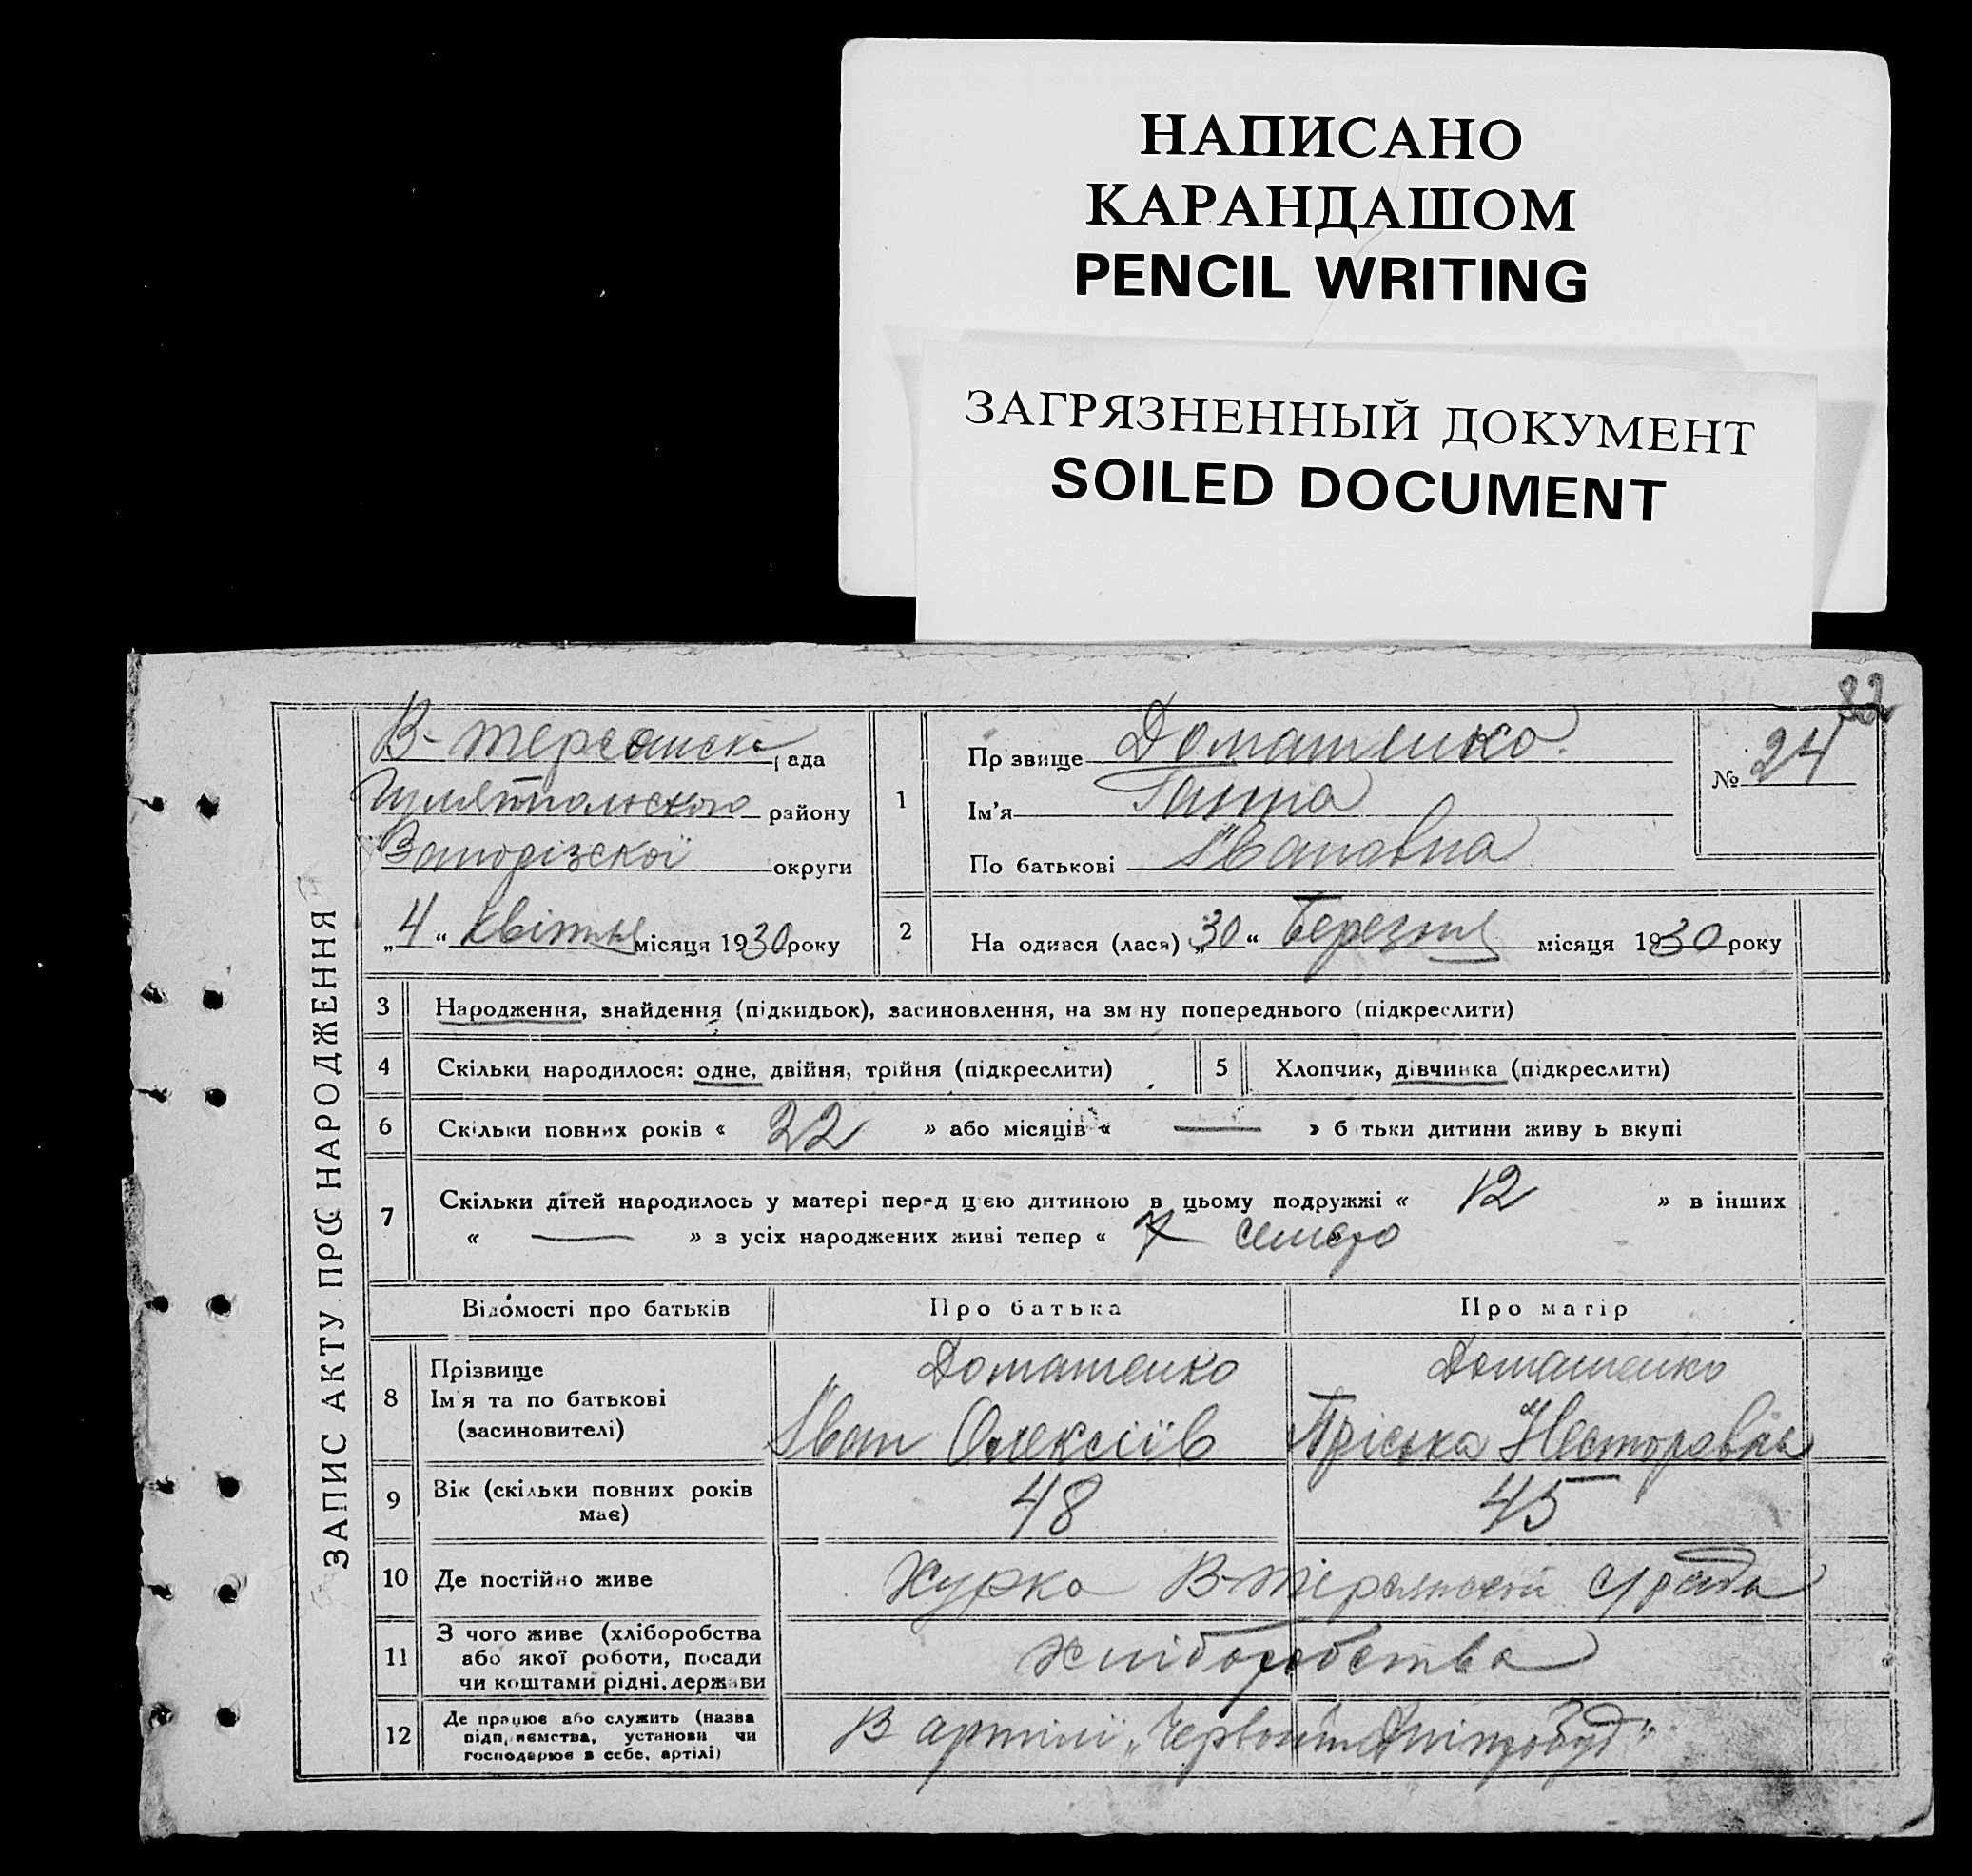 НАПИСАНО
КАРАНДАШОМ
PENCIL WRITING
ЗАГРЯЗНЕННЫЙ ДОКУМЕНТ
SOILED DOCUMENT
32
ЗАПИС АКТУ ПРО НАРОДЖЕННЯ
В-Терсанська рада
Гуляйпольського району
Запорізської округи
„4“ Квітня місяця 1930 року
1
Прізвище Доматенко.
Ім’я Ганна
По батькові Івановна
№ 24
2
На одився (лася) „30“ Березня місяця 1930 року
3 Народження, знайдення (підкидьок), засиновлення, на зм ну попереднього (підкреслити)
4 Скільки народилося: одне, двійня, трійня (підкреслити)
5 Хлопчик, дівчинка (підкреслити)
6 Скільки повних років « 22 » або місяців « — » б тьки дитини живу ь вкупі
7 Скільки дітей народилось у матері перед цією дитиною в цьому подружжі « 12 » в інших
« — » з усіх народжених живі тепер « 7 семеро
Відомості про батьків
Про батька
Про матір
8 Прізвище
Ім'я та по батькові
(засиновителі)
Доматенко
Іван Олексіїв
Доматенко
Пріська Несторовна
9 Вік (скільки повних років
має)
48
45
10 Де постійно живе
В-Терсянської с/рада
11 З чого живе (хліборобства
або якої роботи, посади
чи коштами рідні, держави
хліборобства
12 Де працює або служить (назва
підприємства, установи чи
господарює в себе, артілі)
В артілі „Червоний Дніпробуд“